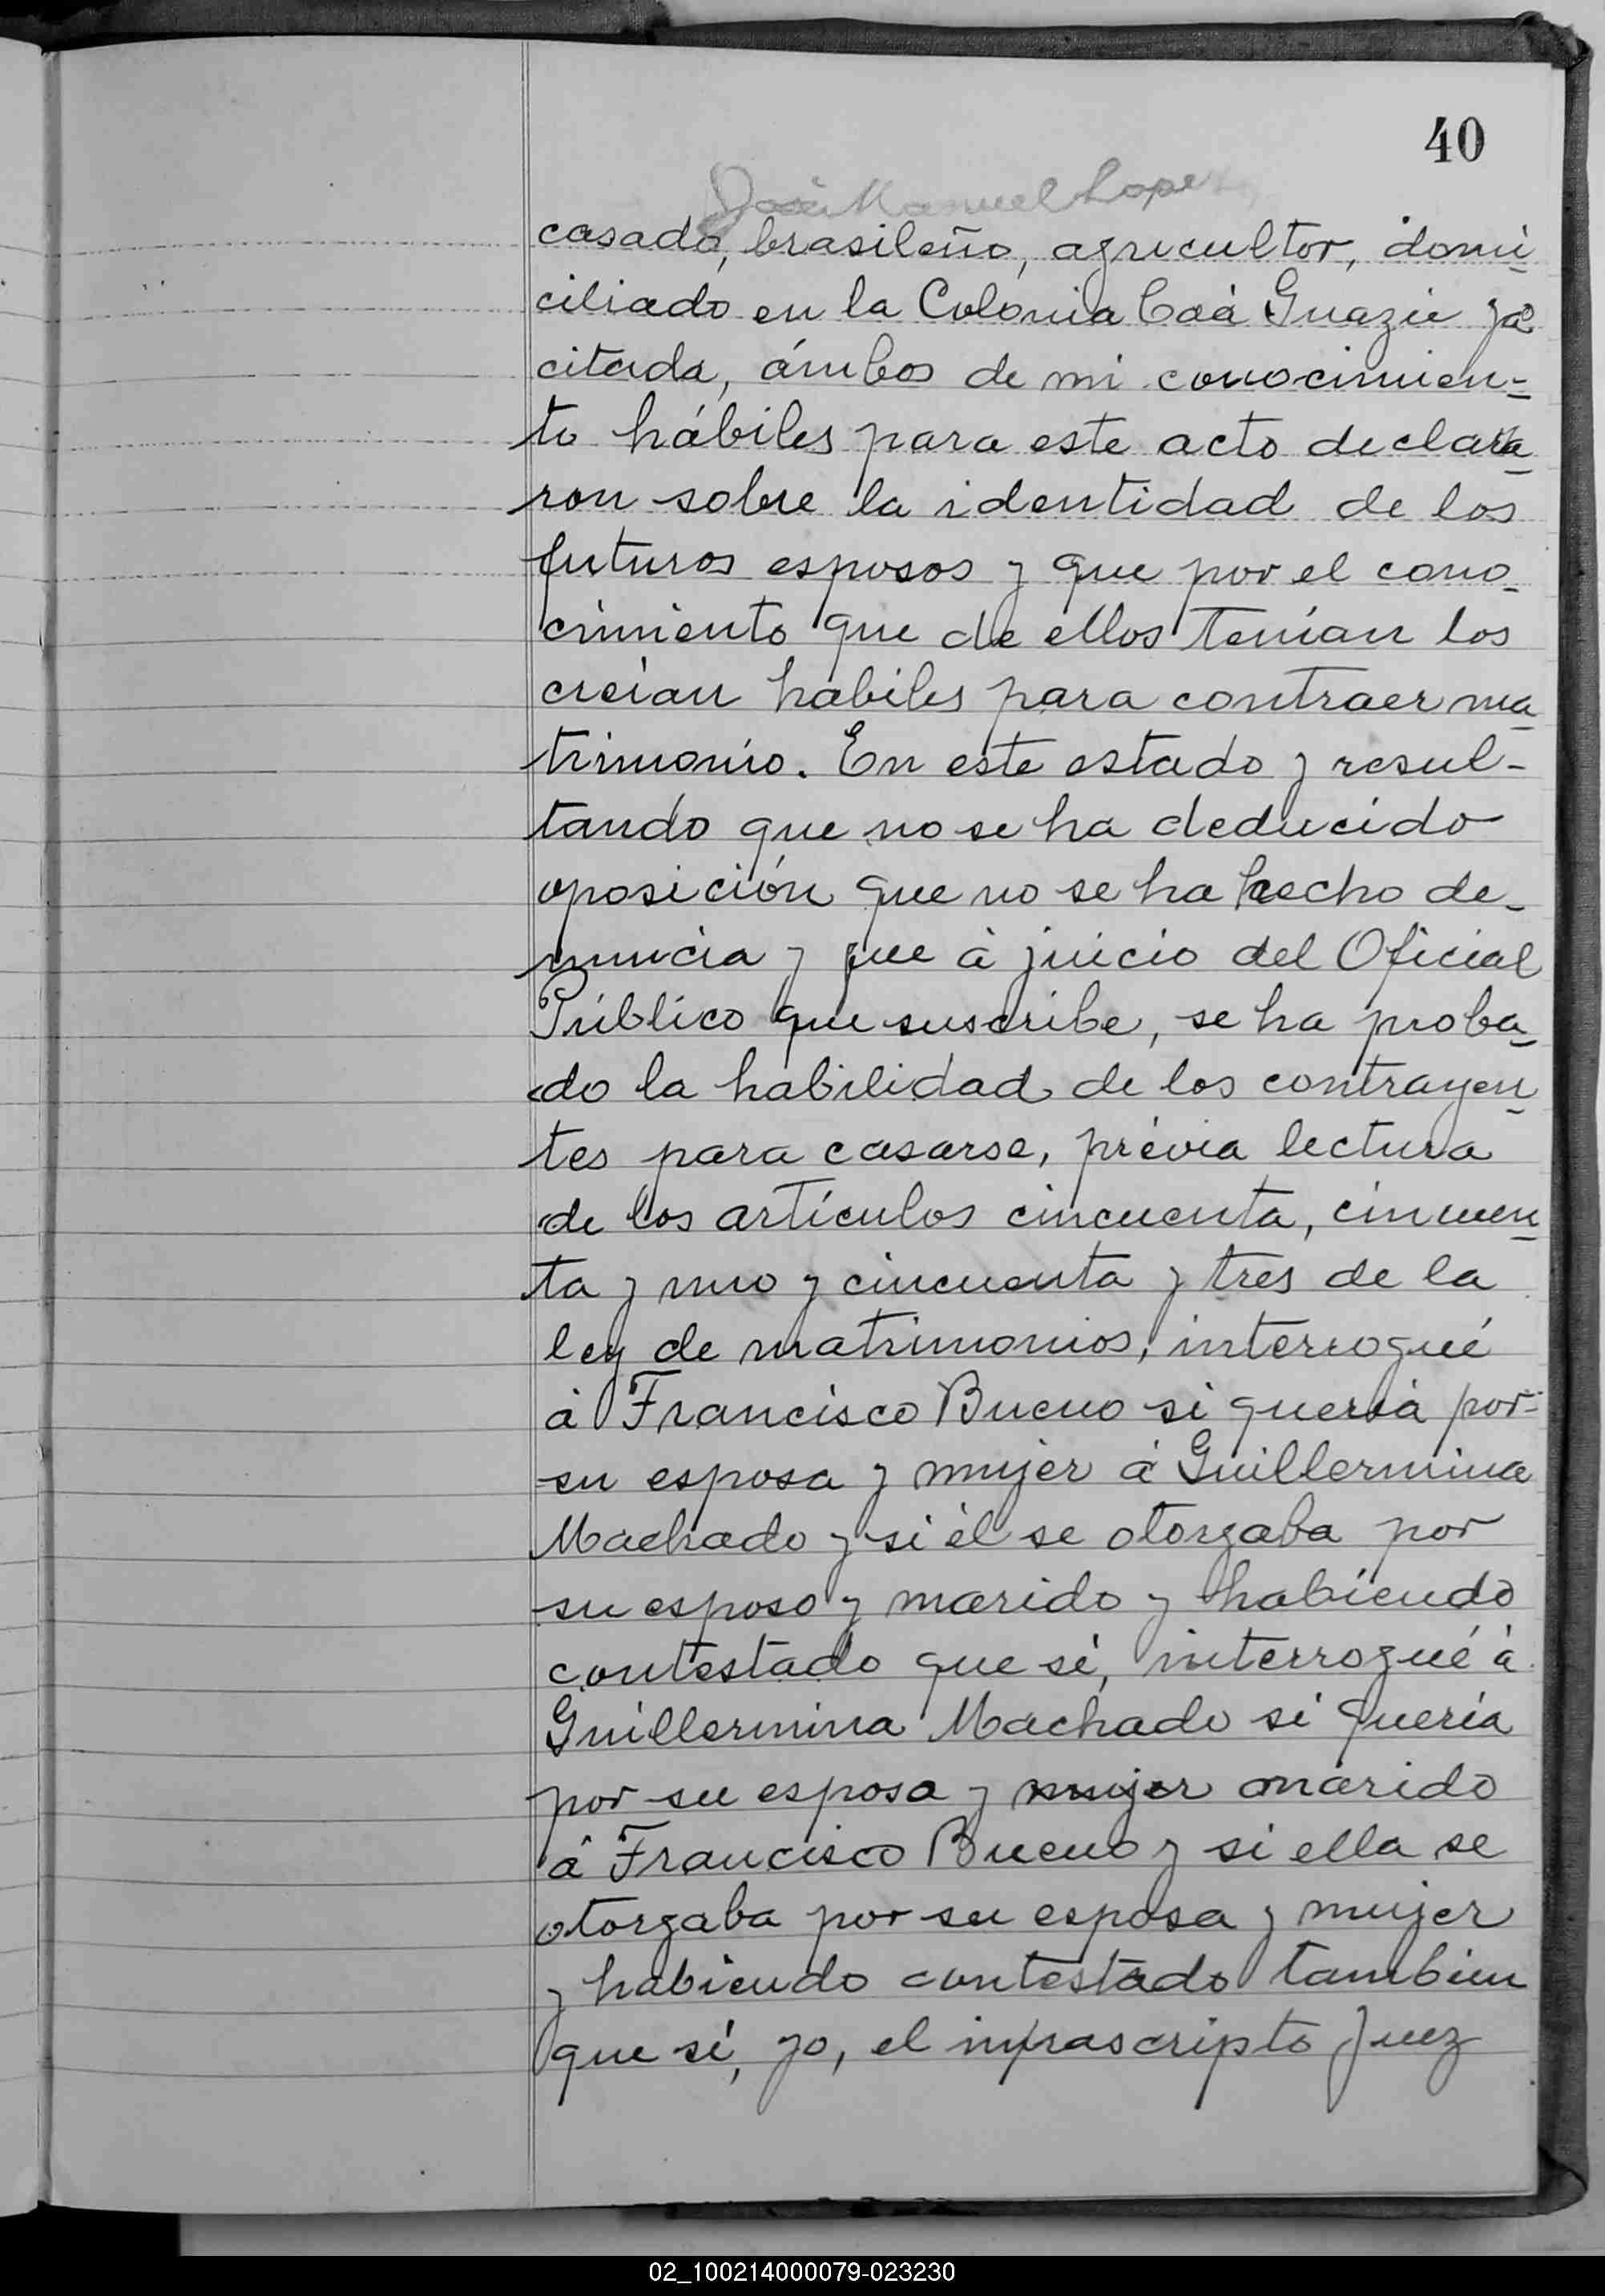 40
José Manuel Lopez
casado, brasileño, agricultor, domi-
ciliado en la Colonia Caá Guazú ya
citada, ámbos de mi conocimien-
to hábiles para este acto declara-
ron sobre la identidad de los
futuros esposos y que por el cono-
cimiento que de ellos tenían los
creían hábiles para contraer ma-
trimonio. En este estado y resul-
tando que no se ha deducido
oposición que no se ha hecho de-
nuncia y que á juicio del Oficial
Público que suscribe, se ha proba-
do la habilidad de los contrayen-
tes para casarse, prévia lectura
de los artículos cincuenta, cincuen-
ta y uno y cincuenta y tres de la
ley de matrimonios, interrogué
á Francisco Bueno si quería por-
su esposa y mujer á Guillermina
Machado y si él se otorgaba por
su esposo y marido y habiendo
contestado que sí, interrogué á
Guillermina Machado si quería
por su esposa y mujer marido
á Francisco Bueno y si ella se
otorgaba por su esposa y mujer
y habiendo contestado tambien
que sí, yo, el infrascripto Juez
02_100214000079-023230